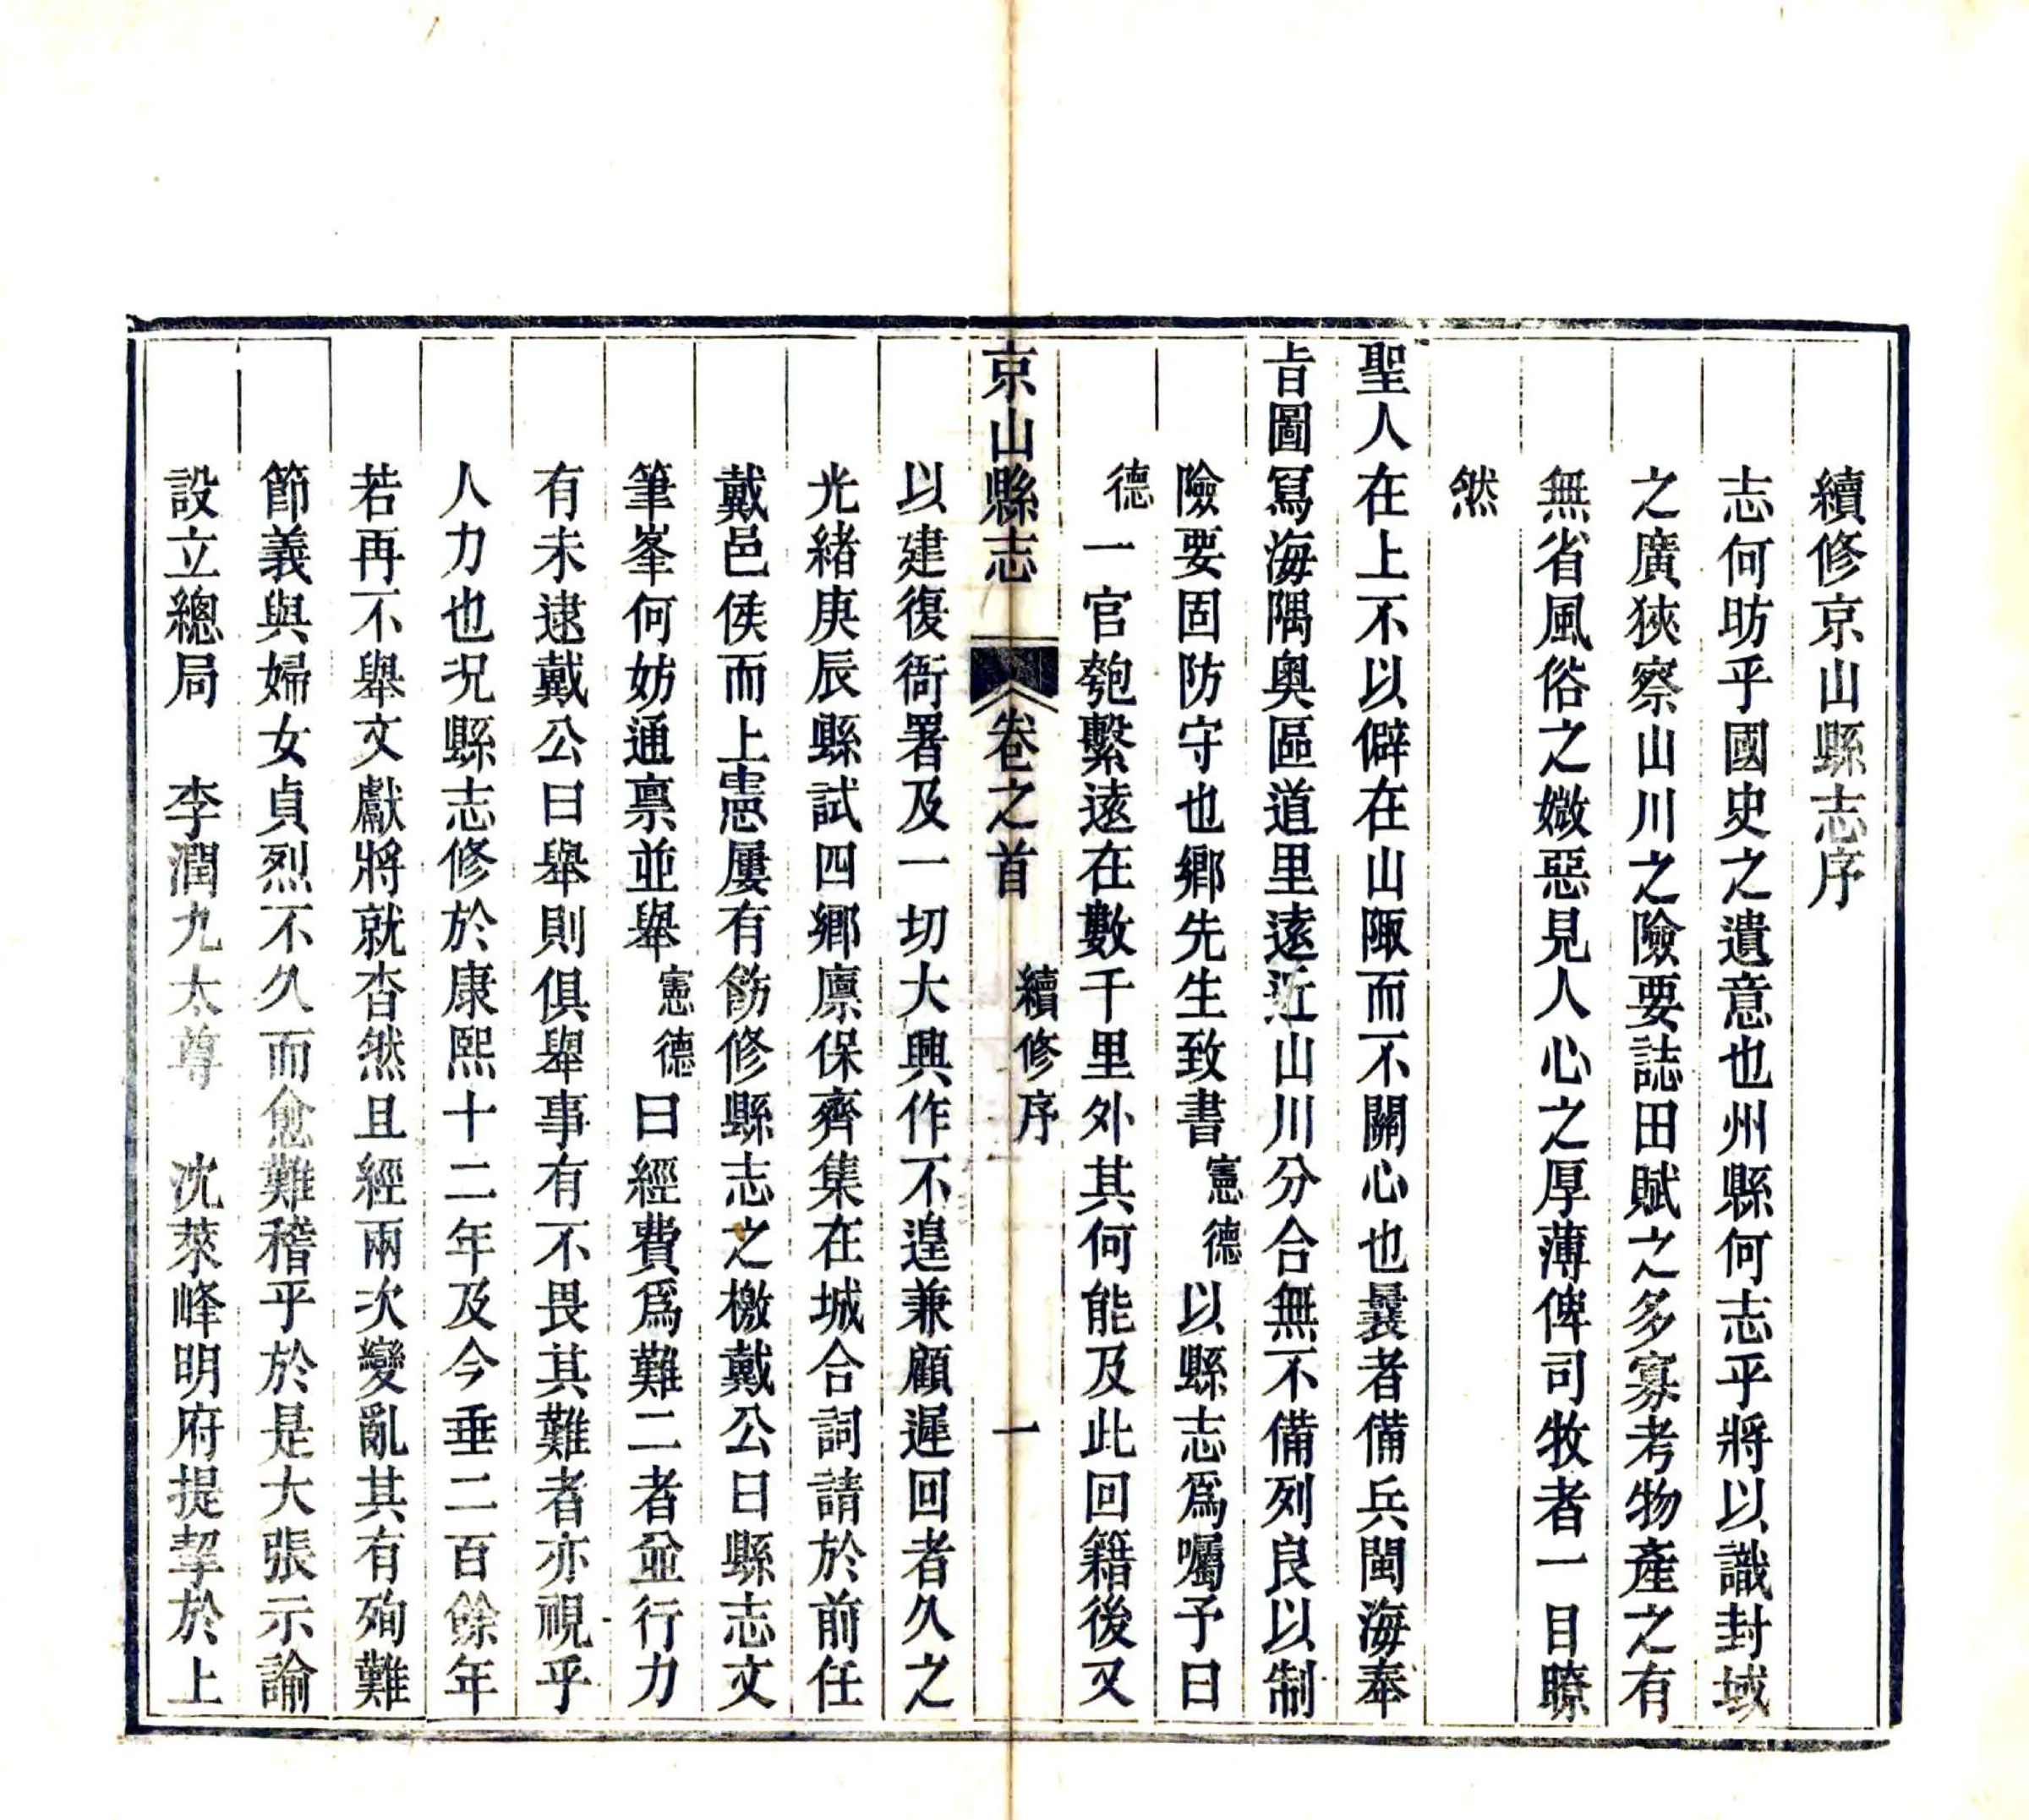 續修京山縣志序
志何昉乎國史之遺意也州縣何志乎將以識封域
之廣狹察山川之險要誌田賦之多寡考物產之有
無省風俗之媺惡見人心之厚薄俾司牧者一目瞭
然
聖人在上不以僻在山陬而不關心也曩者備兵閩海奉
旨圖冩海隅奥區道里逺近山川分合無不備列良以制
險要固防守也鄉先生致書憲德以縣志爲囑予曰
德一官匏繫逺在數千里外其何能及此回籍後又
京山縣志 卷之首 續修序 一
以建復衙署及一切大興作不遑兼顧遲回者久之
光緒庚辰縣試四鄉廩保齊集在城合詞請於前任
戴邑侯而上憲屢有飭修縣志之檄戴公曰縣志文
筆峯何妨通禀並舉憲德曰經費爲難二者並行力
有未逮戴公曰舉則俱舉事有不畏其難者亦視乎
人力也况縣志修於康熙十二年及今垂二百餘年
若再不舉文獻將就杳然且經兩次變亂其有殉難
節義與婦女貞烈不久而愈難稽乎於是大張示諭
設立總局 李潤九太尊 沈萊峰明府提挈於上